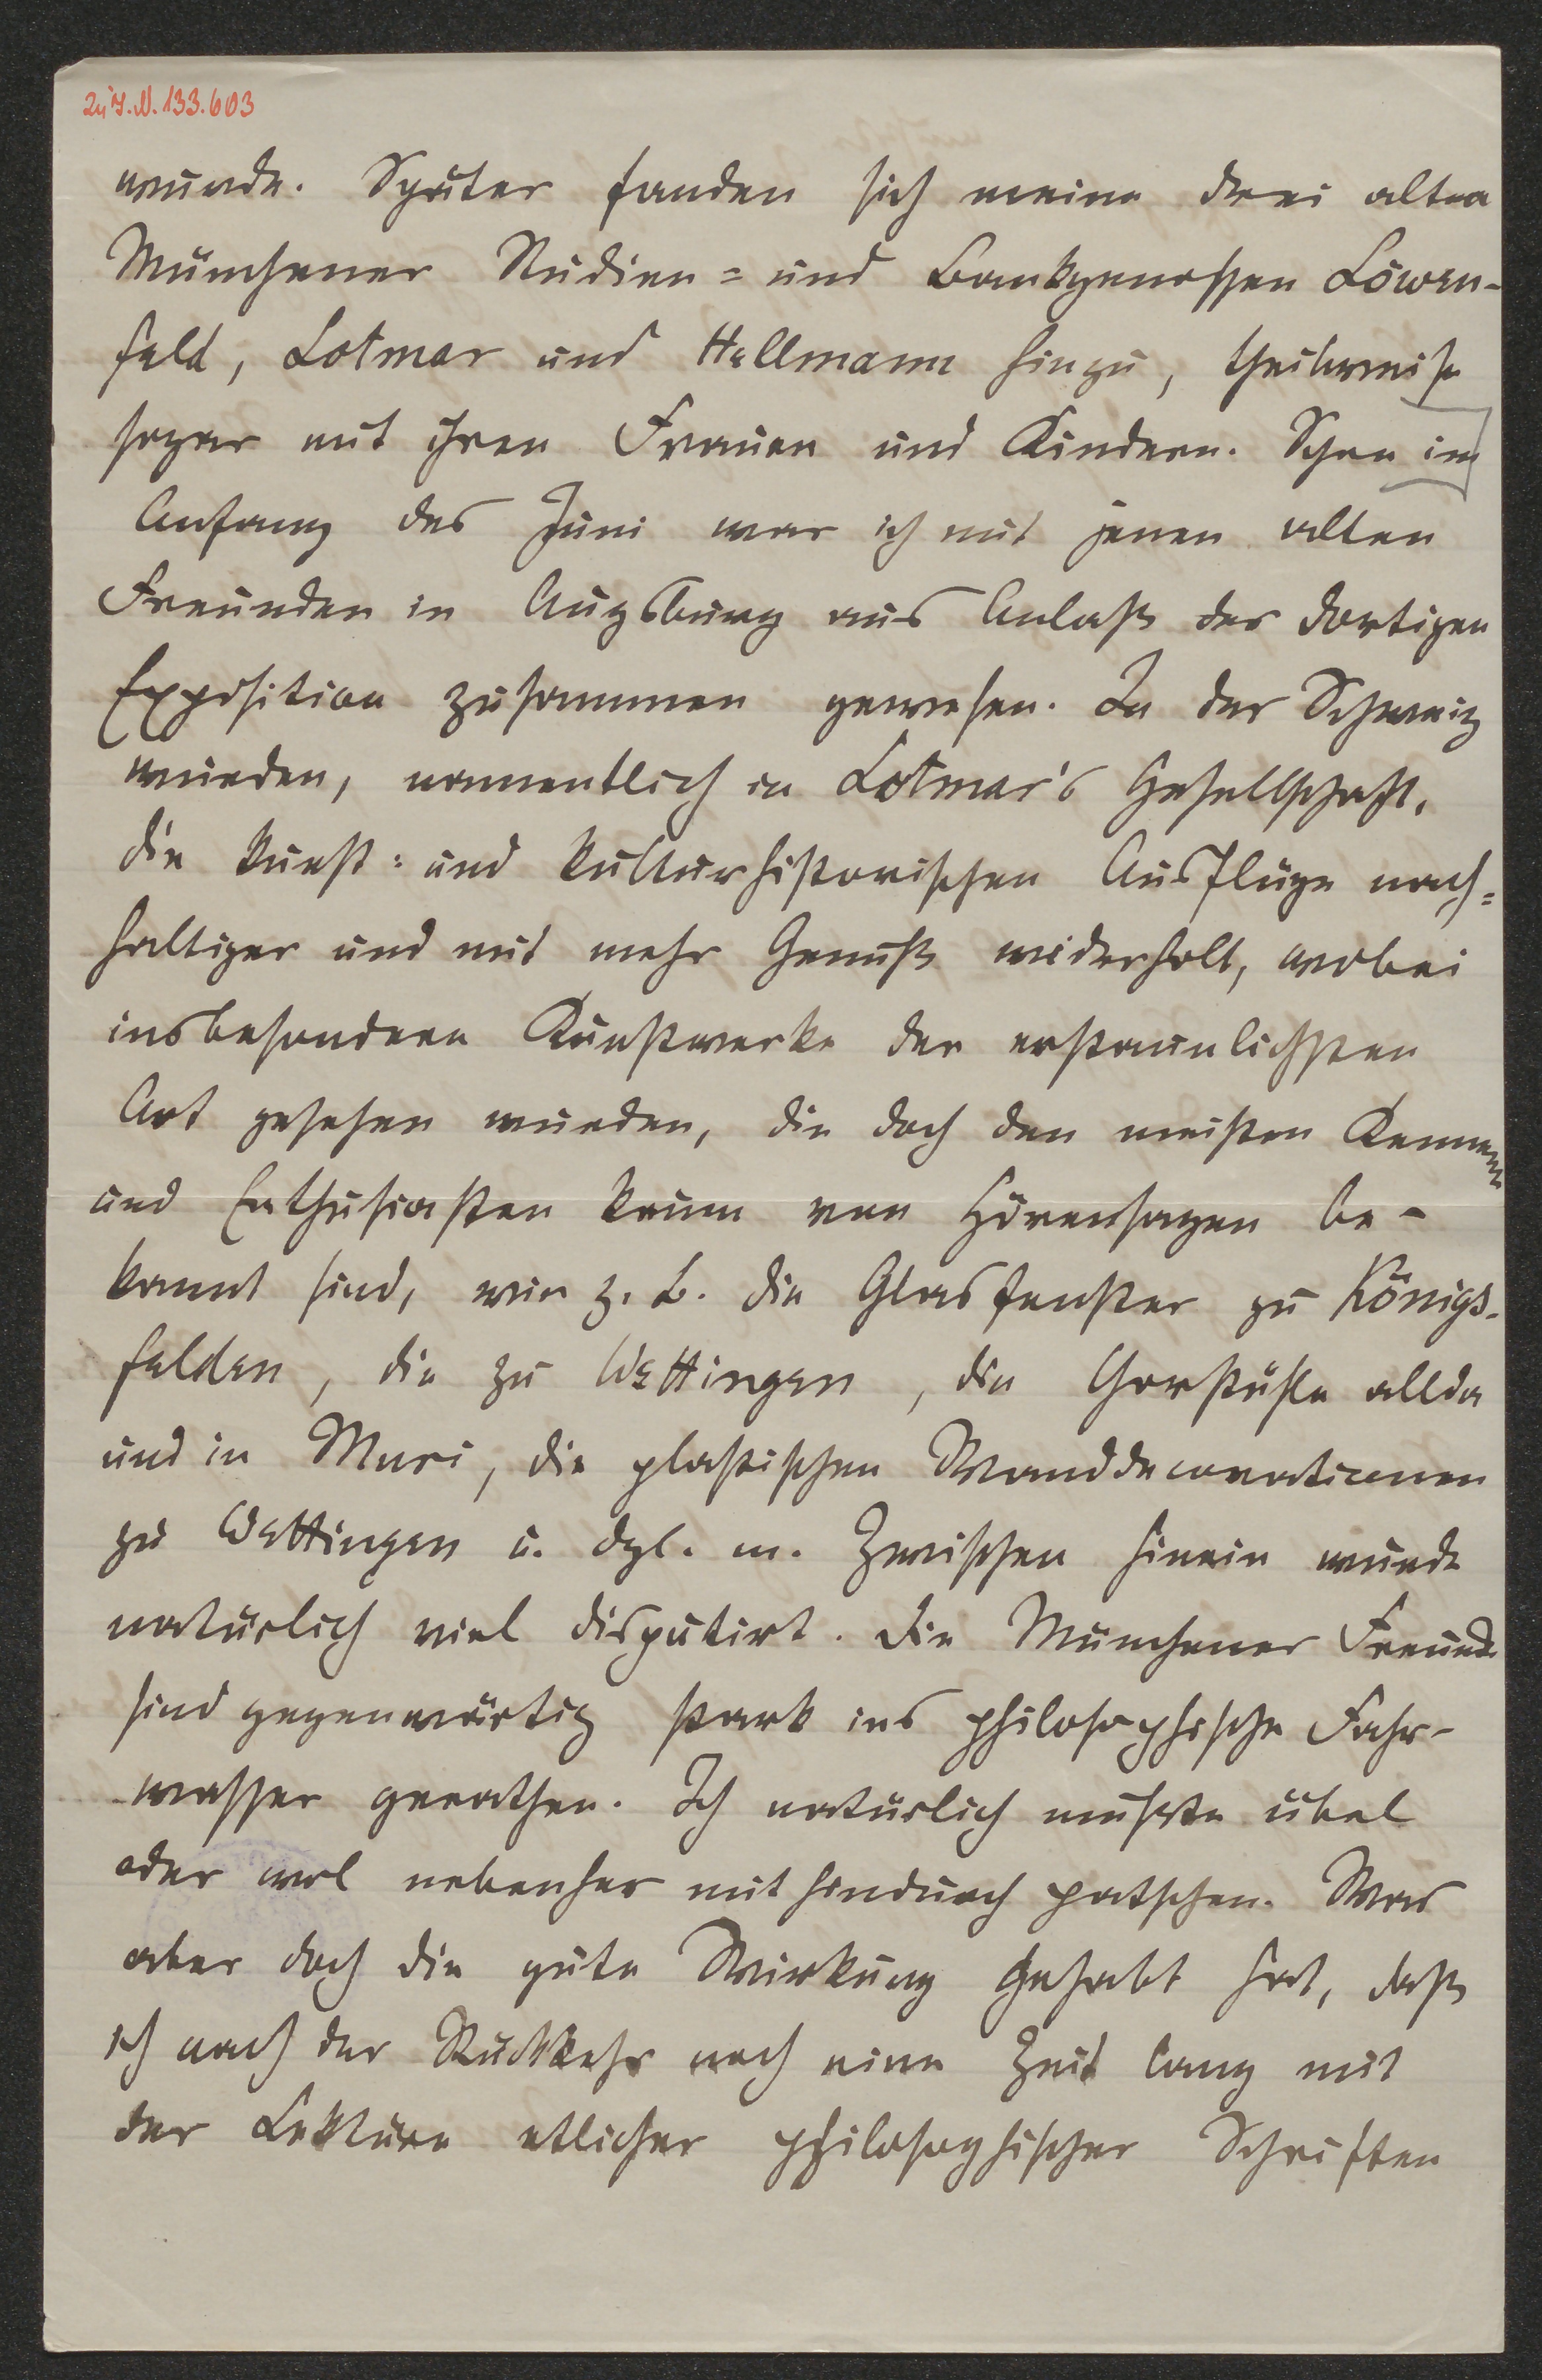 Zu I.N. 133.603
wurde. Später fanden sich meine drei alten
Münchener Studien= und Bankgenossen Löwen-
feld, Lotmar und Hellmann hinzu, theilweise
sogar mit ihren Frauen und Kindern. Schon im
Anfang des Juni war ich mit jenen alten
Freunden in Augsburg aus Anlaß der dortigen
Exposition zusammen gewesen. In der Schweiz
wurden, namentlich in Lotmar's Gesellschaft,
die kunst= und kulturhistorischen Ausflüge nach=
haltiger und mit mehr Genuß widerholt, wobei
insbesondere Kunstwerke der erstaunlichsten
Art gesehen wurden, die doch den meisten Kennern
und Enthusiasten kaum von Hörensagen be-
kannt sind, wie z. B. die Glasfenster zu Königs-
felden, die zu Wettingen, die Chorstühle allda
und in Muri, die plastischen Wanddecorationen
zu Wettingen u. dgl. m. Zwischen hinein wurde
natürlich viel disputirt. Die Münchener Freunde
sind gegenwärtig stark ins philosophische Fahr-
wasser gerathen. Ich natürlich mußte übel
oder wol nebenher mit hindurch patschen. Was
aber doch die gute Wirkung gehabt hat, daß
ich nach der Rückkehr noch eine Zeit lang mit
der Lektüre etlicher philosophischer Schriften